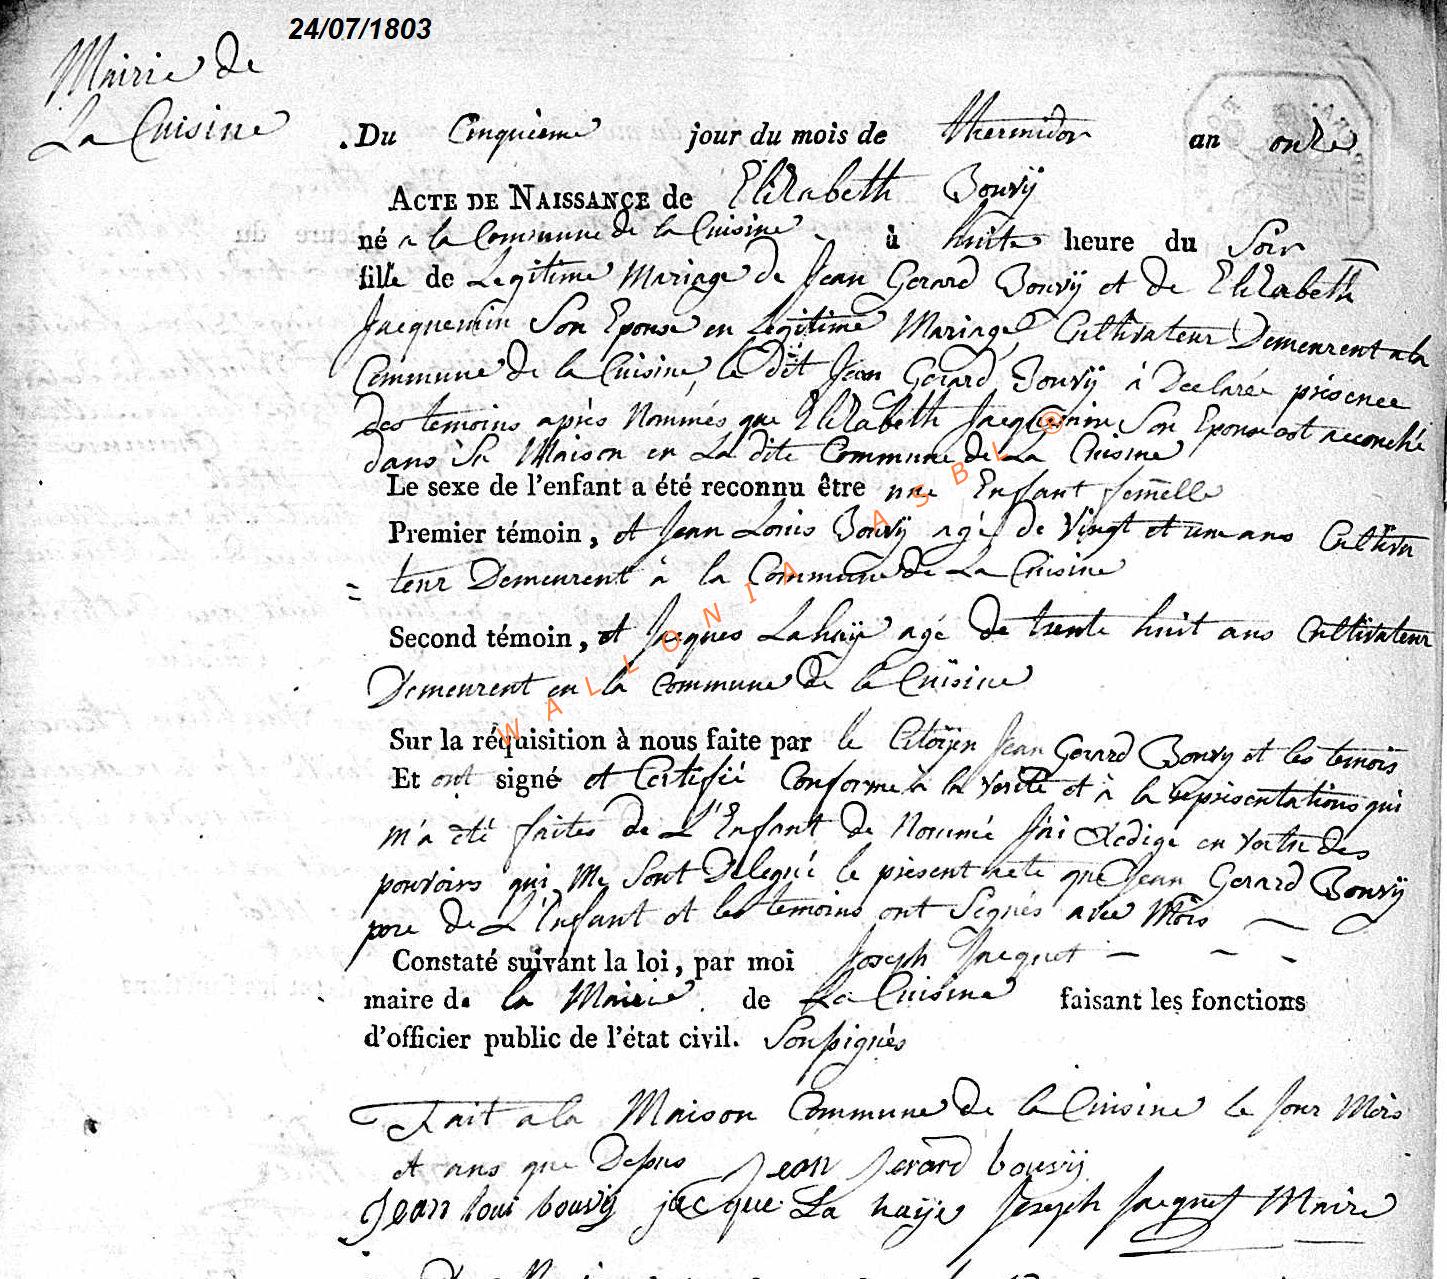 24/07/1803
Mairie de
La Cuisine
Du Cinquieme jour du mois de thermidor an onze
ACTE DE NAISSANCE de Elizabeth Bouvÿ
né a la Commune de la Cuisine à huite heure du Soir
fille de Legitime Mariage de Jean Gerard Bouvÿ et de Elizabeth
Jacquemin Son Epouse en Legitime Mariage Cultivateur Demeurent a la
Commune de la Cuisine, le Dit Jean Gerard Bouvÿ à Declarée présence
des temoins après Nommés que Elizabeth Jacquemin Son Epouse est accouché
dans Sa Maison en La dite Commune de La Cuisine
Le sexe de l'enfant a été reconnu être une Enfant femelle
Premier témoin, et Jean Louis Bouvÿ agé de Vingt et une ans Cultiva
= teur Demeurent à la Commune de La Cuisine
Second témoin, et Jacques Lahaÿe agé de trente huit ans Cultivateur
Demeurent en la commune de la Cuisine
Sur la réquisition à nous faite par le Citoÿen Jean Gerard Bouvy et les temois
Et ont signé et Certifié Conforme à la Verité et à la représentations qui
m'a été faites de L'Enfant de Nommé J'ai Redigé en Vertu des
pouvoirs qui Me Sont Delegué le présent acte que Jean Gerard Bouvÿ
pere de L'Enfant et les temoins ont Segnés avec Mois
Constaté suivant la loi, par moi Joseph Jacquet
maire de la Mairie de La Cuisine faisant les fonctions
d'officier public de l'état civil. Soussignés
Fait a la Maison Commune de la Cuisine le Jour Mois
et ans que Dessus Jean Jerard bouvÿ
Jean loui bouvÿ jacque La haÿe Joseph Jacquet Maire
WALLONIA ASBL ®